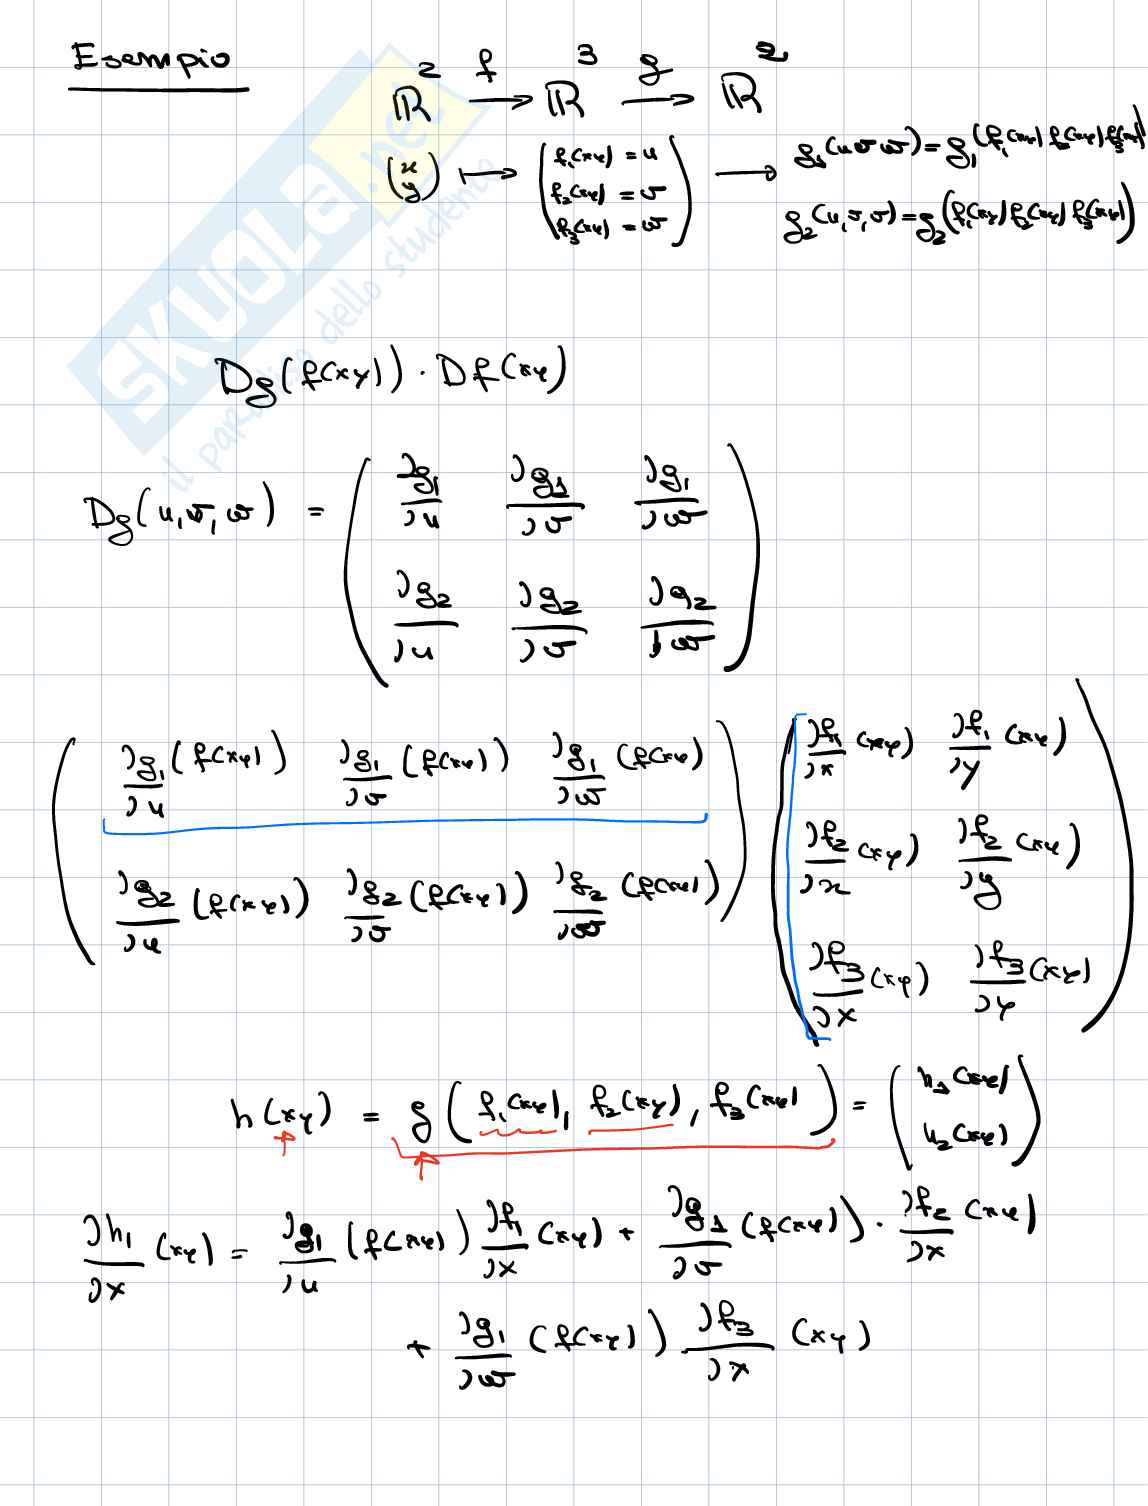 Esempio
ℝ² f→ ℝ³ g→ ℝ²
(x y) ↦ (f₁(xy) = u f₂(xy) = v f₃(xy) = w) → g₁(u v w) = g₁(f₁(xy) f₂(xy) f₃(xy))
g₂(u,v,v) = g₂(f₁(xy) f₂(xy) f₃(xy))
SKUOLA.net
il paradiso dello studente
Dg(f(xy)) · Df(xy)
Dg(u,v,w) = ( ∂g₁/∂u ∂g₁/∂v ∂g₁/∂w
∂g₂/∂u ∂g₂/∂v ∂g₂/∂w )
( ∂g₁/∂u (f(xy)) ∂g₁/∂v (f(xy)) ∂g₁/∂w (f(xy) ) ( ∂f₁/∂x (xy) ∂f₁/∂y (xy)
∂g₂/∂u (f(xy)) ∂g₂/∂v (f(xy)) ∂g₂/∂w (f(xy)) ) ∂f₂/∂x (xy) ∂f₂/∂y (xy)
∂f₃/∂x (xy) ∂f₃/∂y (xy) )
h(xy) = g( f₁(xy), f₂(xy), f₃(xy) ) = ( h₁(xy) h₂(xy) )
∂h₁/∂x (xy) = ∂g₁/∂u (f(xy)) ∂f₁/∂x (xy) + ∂g₁/∂v (f(xy)) · ∂f₂/∂x (xy)
+ ∂g₁/∂w (f(xy)) ∂f₃/∂x (xy)